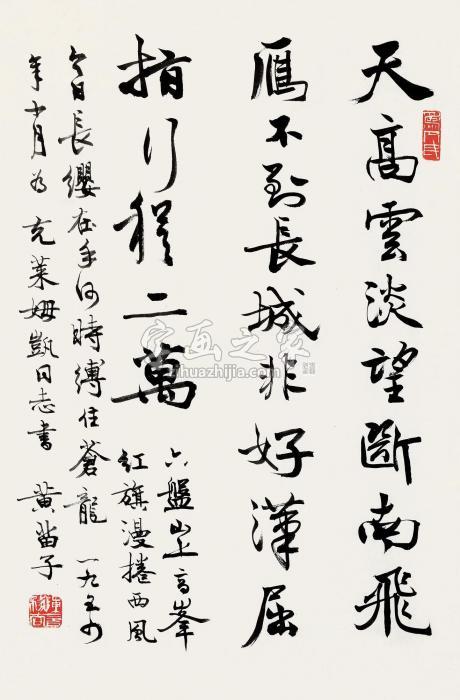 天髙雲淡望斷南飛
鴈不到長城非好漢屈
指行程二萬
六盤山上高峯
紅旗漫捲西風
今日長纓在手何時縛住蒼龍 一九五
年月為克萊姆凱同志書 黄苗子
字画之家
zihuazhijia.com